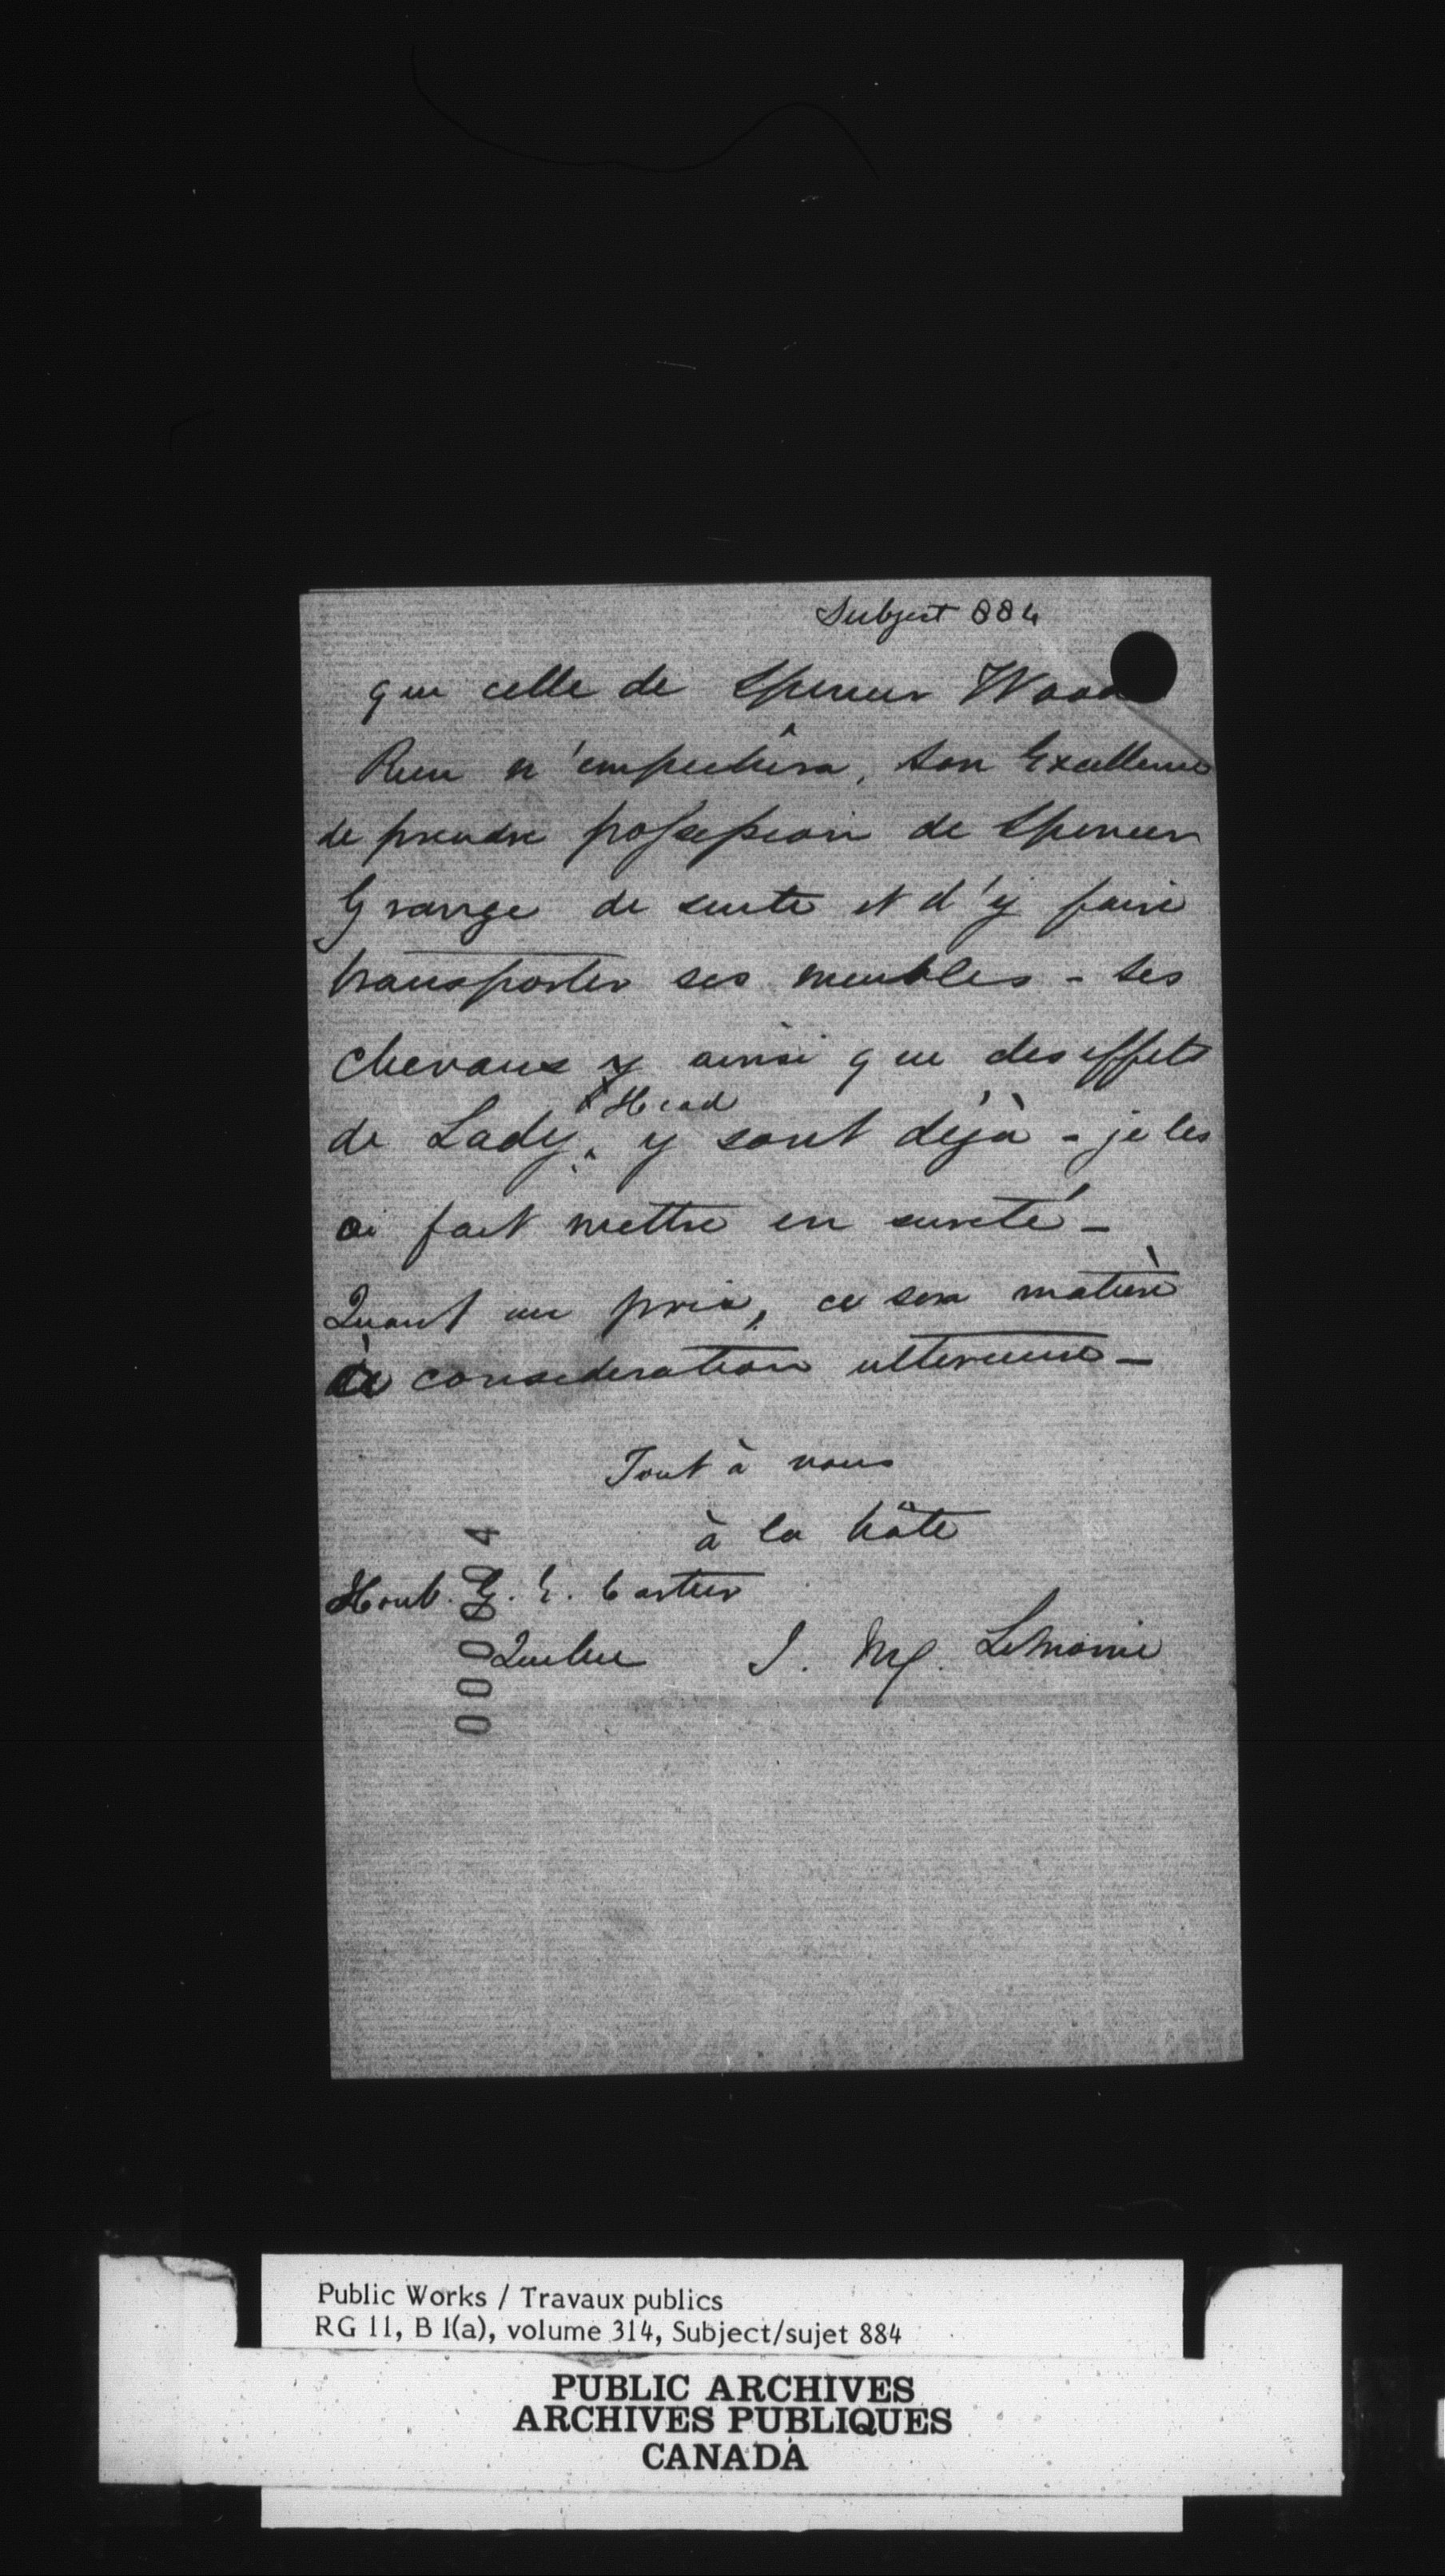 Subject 884
que celle de Spencer Wood
Rien n'empechêra, Son Excellence
de prendre possession de Spencer
Grange de suite et d'y faire
transporter ses meubles - ses
chevaux ainsi que des effets
Head
de Lady y sont déjà - je les
ai fait mettre en sureté -
Quant au prix, ce sera matière
à consideration ulterieure -
Tout à vous
à la hâte
Honb. G. E. Cartier
Quebec J. M. LeMoine
000004
Public Works / Travaux publics
RG 11, B 1(a), volume 314, Subject/sujet 884
PUBLIC ARCHIVES
ARCHIVES PUBLIQUES
CANADA